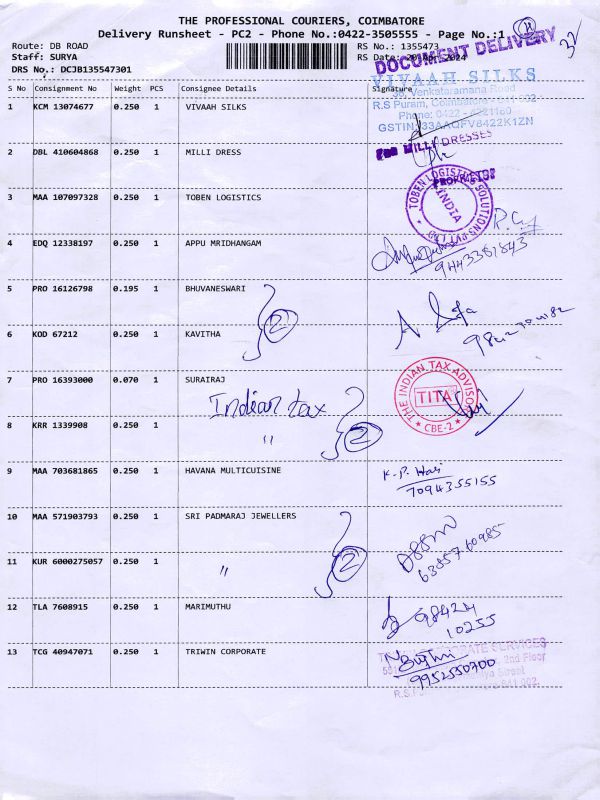 THE PROFESSIONAL COURIERS, COIMBATORE
Delivery Runsheet - PC2 - Phone No.:0422-3505555 - Page No.:1
DOCUMENT DELIVERY
32
Route: DB ROAD
RS No.: 1355473
Staff: SURYA
RS Date:
2024
DRS No.: DCJB135547301
S No Consignment No Weight PCS Consignee Details Signature
VIVAAH SILKS
Venkataramana Road
R.S Puram, Coimbatore
Phone: 0422 -
GSTIN:33AAQFV8422K1ZN
1 KCM 13074677 0.250 1 VIVAAH SILKS
FOR MILLI DRESSES
2 DBL 410604868 0.250 1 MILLI DRESS
PROPRIETOR
TOBEN LOGISTICS SOLUTIONS PVT LTD
INDIA
3 MAA 107097328 0.250 1 TOBEN LOGISTICS
4 EDQ 12338197 0.250 1 APPU MRIDHANGAM
9443381843
5 PRO 16126798 0.195 1 BHUVANESWARI
2
6 KOD 67212 0.250 1 KAVITHA
7 PRO 16393000 0.070 1 SURAIRAJ
Indian tax
THE INDIAN TAX ADVISOR
TITA
CBE-2
8 KRR 1339908 0.250 1 "
2
9 MAA 703681865 0.250 1 HAVANA MULTICUISINE
K.P. Hari
7094355155
10 MAA 571903793 0.250 1 SRI PADMARAJ JEWELLERS
6385760985
11 KUR 6000275057 0.250 1 "
2
12 TLA 7608915 0.250 1 MARIMUTHU
98424
10255
13 TCG 40947071 0.250 1 TRIWIN CORPORATE
CORPORATE SERVICES
2nd Floor
Street
9952550700
R.S.
641 002.